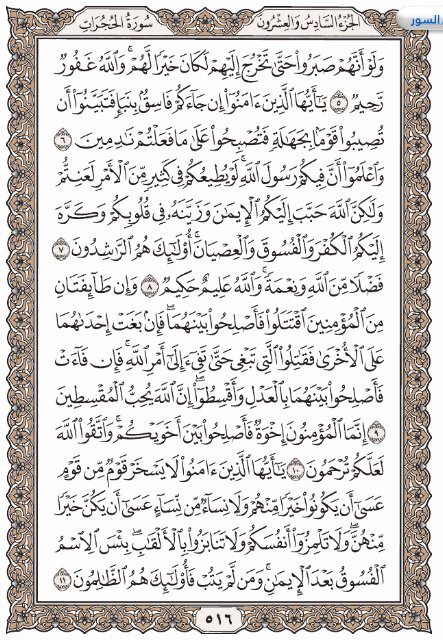 السور
الجزء السادس والعشرون سورة الحجرات
وَلَوْ أَنَّهُمْ صَبَرُوا۟ حَتَّىٰ تَخْرُجَ إِلَيْهِمْ لَكَانَ خَيْرًا لَّهُمْ ۚ وَٱللَّهُ غَفُورٌ
رَّحِيمٌ ٥ يَـٰٓأَيُّهَا ٱلَّذِينَ ءَامَنُوٓا۟ إِن جَآءَكُمْ فَاسِقٌۢ بِنَبَإٍ فَتَبَيَّنُوٓا۟ أَن
تُصِيبُوا۟ قَوْمًۢا بِجَهَـٰلَةٍ فَتُصْبِحُوا۟ عَلَىٰ مَا فَعَلْتُمْ نَـٰدِمِينَ ٦
وَٱعْلَمُوٓا۟ أَنَّ فِيكُمْ رَسُولَ ٱللَّهِ ۚ لَوْ يُطِيعُكُمْ فِى كَثِيرٍ مِّنَ ٱلْأَمْرِ لَعَنِتُّمْ
وَلَـٰكِنَّ ٱللَّهَ حَبَّبَ إِلَيْكُمُ ٱلْإِيمَـٰنَ وَزَيَّنَهُۥ فِى قُلُوبِكُمْ وَكَرَّهَ
إِلَيْكُمُ ٱلْكُفْرَ وَٱلْفُسُوقَ وَٱلْعِصْيَانَ ۚ أُو۟لَـٰٓئِكَ هُمُ ٱلرَّٰشِدُونَ ٧
فَضْلًا مِّنَ ٱللَّهِ وَنِعْمَةً ۚ وَٱللَّهُ عَلِيمٌ حَكِيمٌ ٨ وَإِن طَآئِفَتَانِ
مِنَ ٱلْمُؤْمِنِينَ ٱقْتَتَلُوا۟ فَأَصْلِحُوا۟ بَيْنَهُمَا ۖ فَإِنۢ بَغَتْ إِحْدَىٰهُمَا
عَلَى ٱلْأُخْرَىٰ فَقَـٰتِلُوا۟ ٱلَّتِى تَبْغِى حَتَّىٰ تَفِىٓءَ إِلَىٰٓ أَمْرِ ٱللَّهِ ۚ فَإِن فَآءَتْ
فَأَصْلِحُوا۟ بَيْنَهُمَا بِٱلْعَدْلِ وَأَقْسِطُوٓا۟ ۖ إِنَّ ٱللَّهَ يُحِبُّ ٱلْمُقْسِطِينَ
٩ إِنَّمَا ٱلْمُؤْمِنُونَ إِخْوَةٌ فَأَصْلِحُوا۟ بَيْنَ أَخَوَيْكُمْ ۚ وَٱتَّقُوا۟ ٱللَّهَ
لَعَلَّكُمْ تُرْحَمُونَ ١٠ يَـٰٓأَيُّهَا ٱلَّذِينَ ءَامَنُوا۟ لَا يَسْخَرْ قَوْمٌ مِّن قَوْمٍ
عَسَىٰٓ أَن يَكُونُوا۟ خَيْرًا مِّنْهُمْ وَلَا نِسَآءٌ مِّن نِّسَآءٍ عَسَىٰٓ أَن يَكُنَّ خَيْرًا
مِّنْهُنَّ ۖ وَلَا تَلْمِزُوٓا۟ أَنفُسَكُمْ وَلَا تَنَابَزُوا۟ بِٱلْأَلْقَـٰبِ ۖ بِئْسَ ٱلِٱسْمُ
ٱلْفُسُوقُ بَعْدَ ٱلْإِيمَـٰنِ ۚ وَمَن لَّمْ يَتُبْ فَأُو۟لَـٰٓئِكَ هُمُ ٱلظَّـٰلِمُونَ ١١
٥١٦